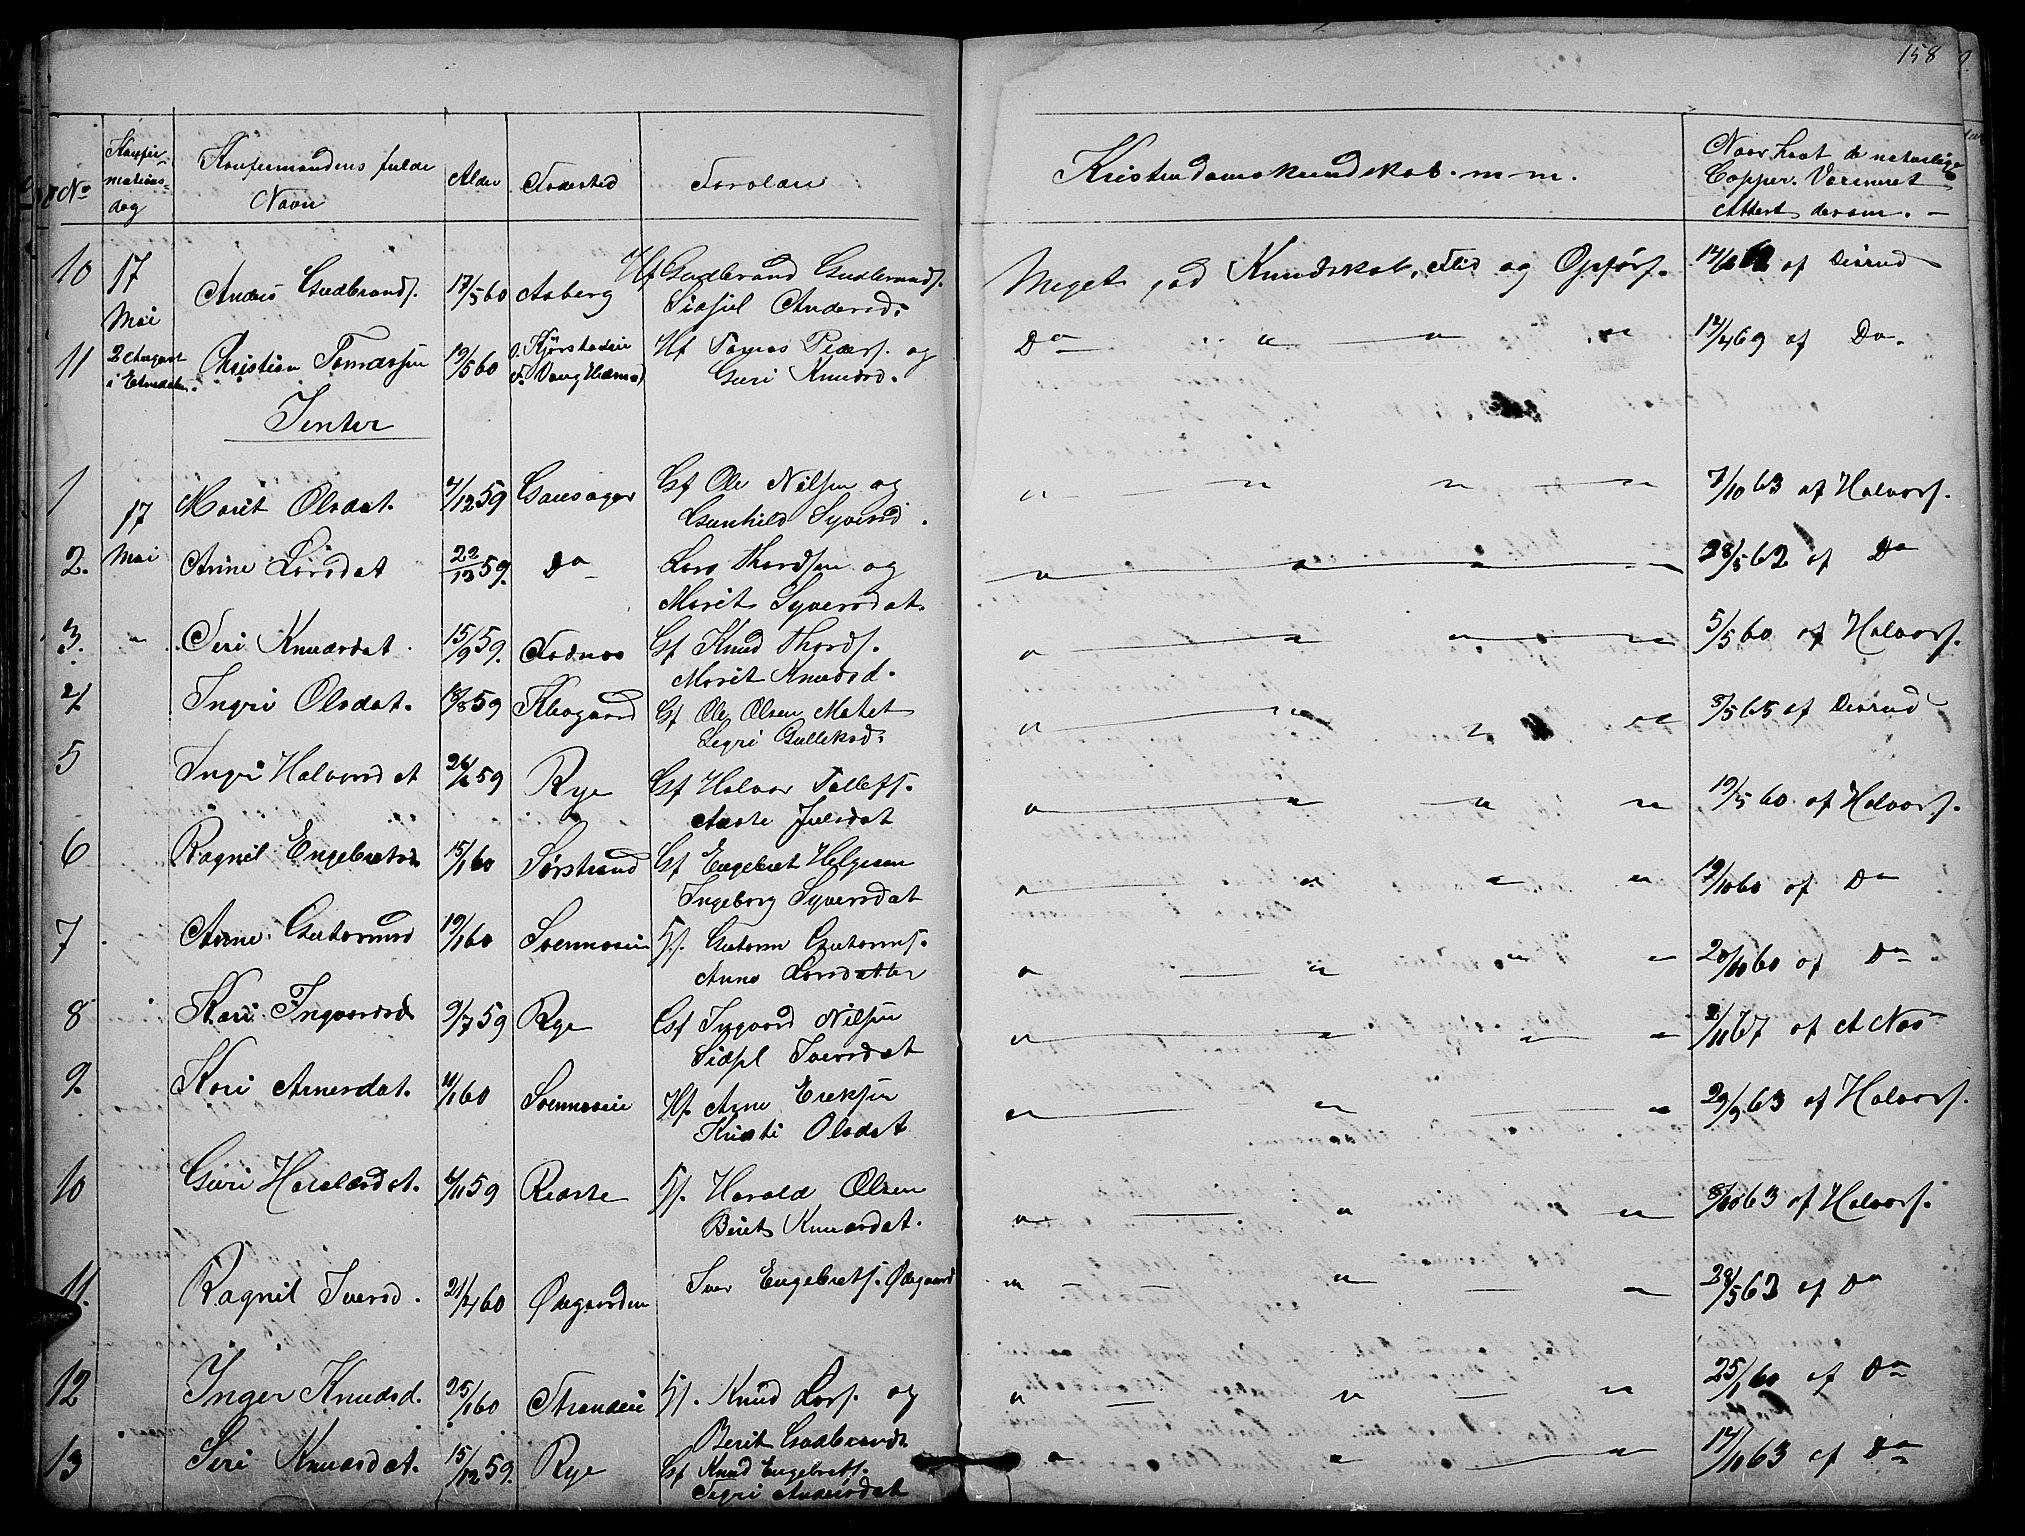 158
No
Konfir-
mations-
dag
Konfirmandens fulde
Navn
Alder
Fødested
Forældre
Kristendomskundskab. m. m.
Naar havt de naturlige
Copper. Vaccineret
Attest derom. –
10 17 Mai Anders Gudbrands. 17/5 60 Aaberg Hf Gudbrand Gudbrands.
Sidsel Andersd. Meget god Kundskab, Flid og Opførs. 14/ 62 af Disrud
11 2 August i Etnedalen. Christian Tomassen 19/5 60 Hf Tomas Peders. og
Guri Knudsd. Do " " " 12/4 69 af Do.
Jenter
1 17 Mai Marit Olsdat. 7/12 59 Gausager Gf Ole Nilsen og
Gunhild Syversd. " " " " 7/10 63 af Halvors.
2. Anne Larsdat 22/12 59. Do Lars Thordsen og
Marit Syversdat. " " " 28/5 62 af Do
3. " Siri Knudsdat. 15/9 59. Fodnes Gf Knud Thords.
Marit Knudsd. " " " " 5/5 60 af Halvors.
4 Ingri Olsdat. 18/8 59 Gf Ole Olsen
Sigri Gulleksd. " " " " 3/5 65 af Disrud
5 Ingri Halvorsdat 59 Rye Gf Halvor Tollefs.
Aaste Julsdat " " " " 19/5 60. af Halvors.
6 Ragnil Engebretsd 15/1 60 Sørstrand Gf Engebret Helgesen
Ingeborg Syversdat " " " " 19/10 60 af Do
7. Anne Guttormsd 19/1 60 Svennesein Hf. Guttorm Guttorms.
Anne Larsdatter " " " " 20/10 60 af Do
8 Kari Ingvarsd 9/7 59 Rye Gf Ingvard Nilsen
Sidsel Iversdat " " " " 2/11 67 af A Næs
9. Kari Arnesdat. 11/1 60 Svennesein Hf. Arne Eriksen
Kristi Olsdat " " " 29/9 63 af Halvors.
10 Guri Haraldsdat. 6/11 59 Reiste Hf. Harald Olsen
Berit Knudsdat. " " " 8/10 63 af Halvors.
11. Ragnil Iversd. 21/4 60 Ødegaarden Iver Engebrets. Ødegaard " " " 28/5 62 af Do
12 Inger Knudsd. 25/1 60 Stranden Hf. Knud Lars. og
Berit Gudbrandsd. " " " 25/1 60 af Do
13 Siri Knudsdat. 15/12 59. Rye Gf Knud Engebrets.
Sigri Andersdat " " " 17/10 63 af Do